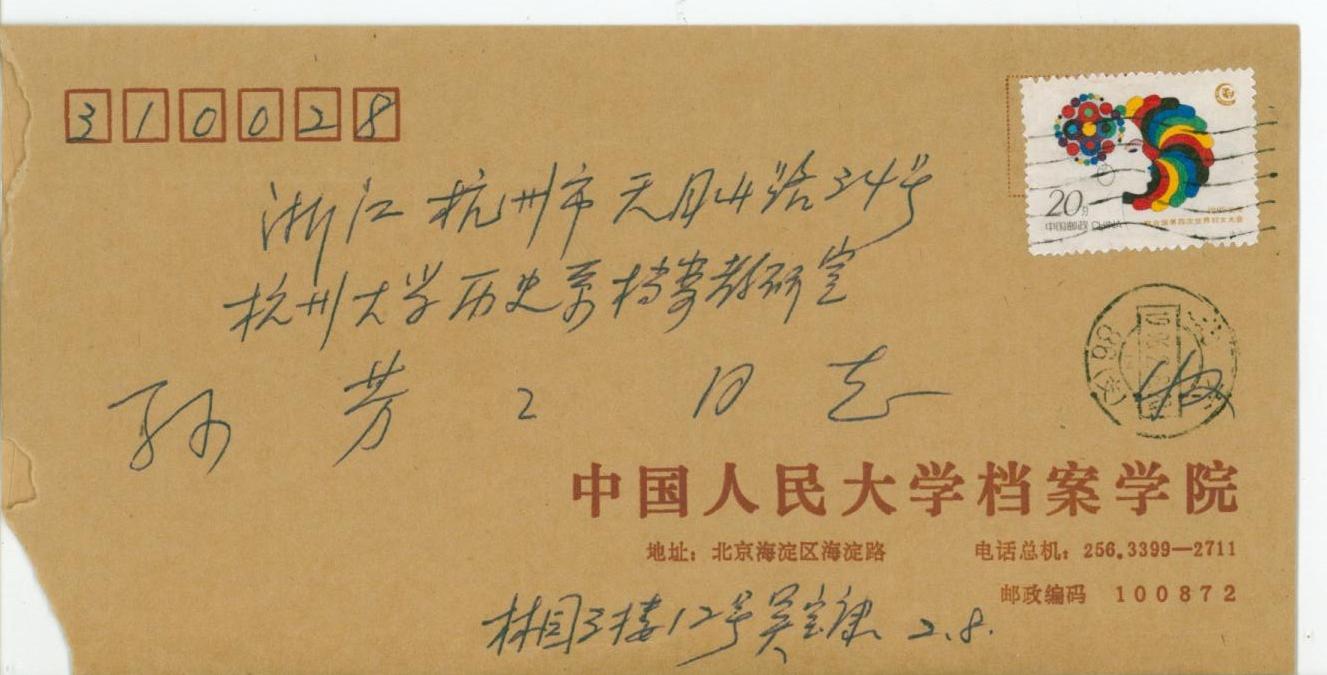 310028
20分
中国邮政 CHINA
联合国第四次世界妇女大会
浙江杭州市天目山路34号
杭州大学历史系档案教研室
孙芳 同志
中国人民大学档案学院
地址：北京海淀区海淀路 电话总机：256.3399—2711
邮政编码 100872
林园3楼12号吴宝康 2.8.